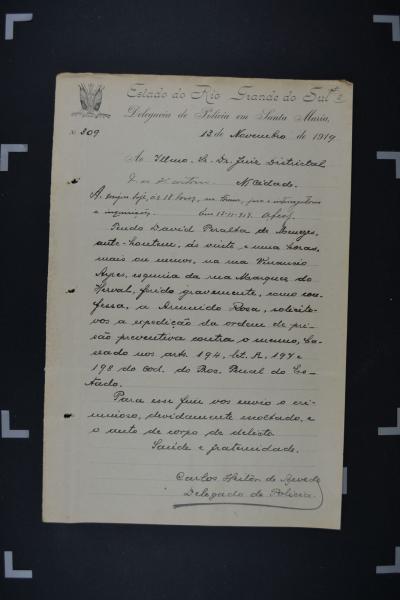 Estado do Rio Grande do Sul
Delegacia de Policia em Santa Maria,
N. 209
12 de Novembro de 1919
Ao Illmo. Sr. Dr. Juiz Districtal
N/Cidade.
A. hoje, ás 18 horas,
e inquirição. Em 15-11-919.
Tendo David Peralta de Menezes,
ante-hontem, ás vinte e uma horas,
mais ou menos, na rua Venancio
Ayres, esquina da rua Marquez do
Herval, ferido gravemente, como con-
fessa, a Arumindo Rosa, solicito-
vos a expedição da ordem de pri-
são preventiva contra o mesmo, ba-
seado nos arts. 194, let. A, 197 e
198 do Cod. do Proc. Penal do Es-
tado.
Para esse fim vos envio o cri-
minoso, devidamente escoltado, e
o auto de corpo de delicto.
Saúde e fraternidade.
Carlos Heitor de Azevedo
Delegado de Policia.